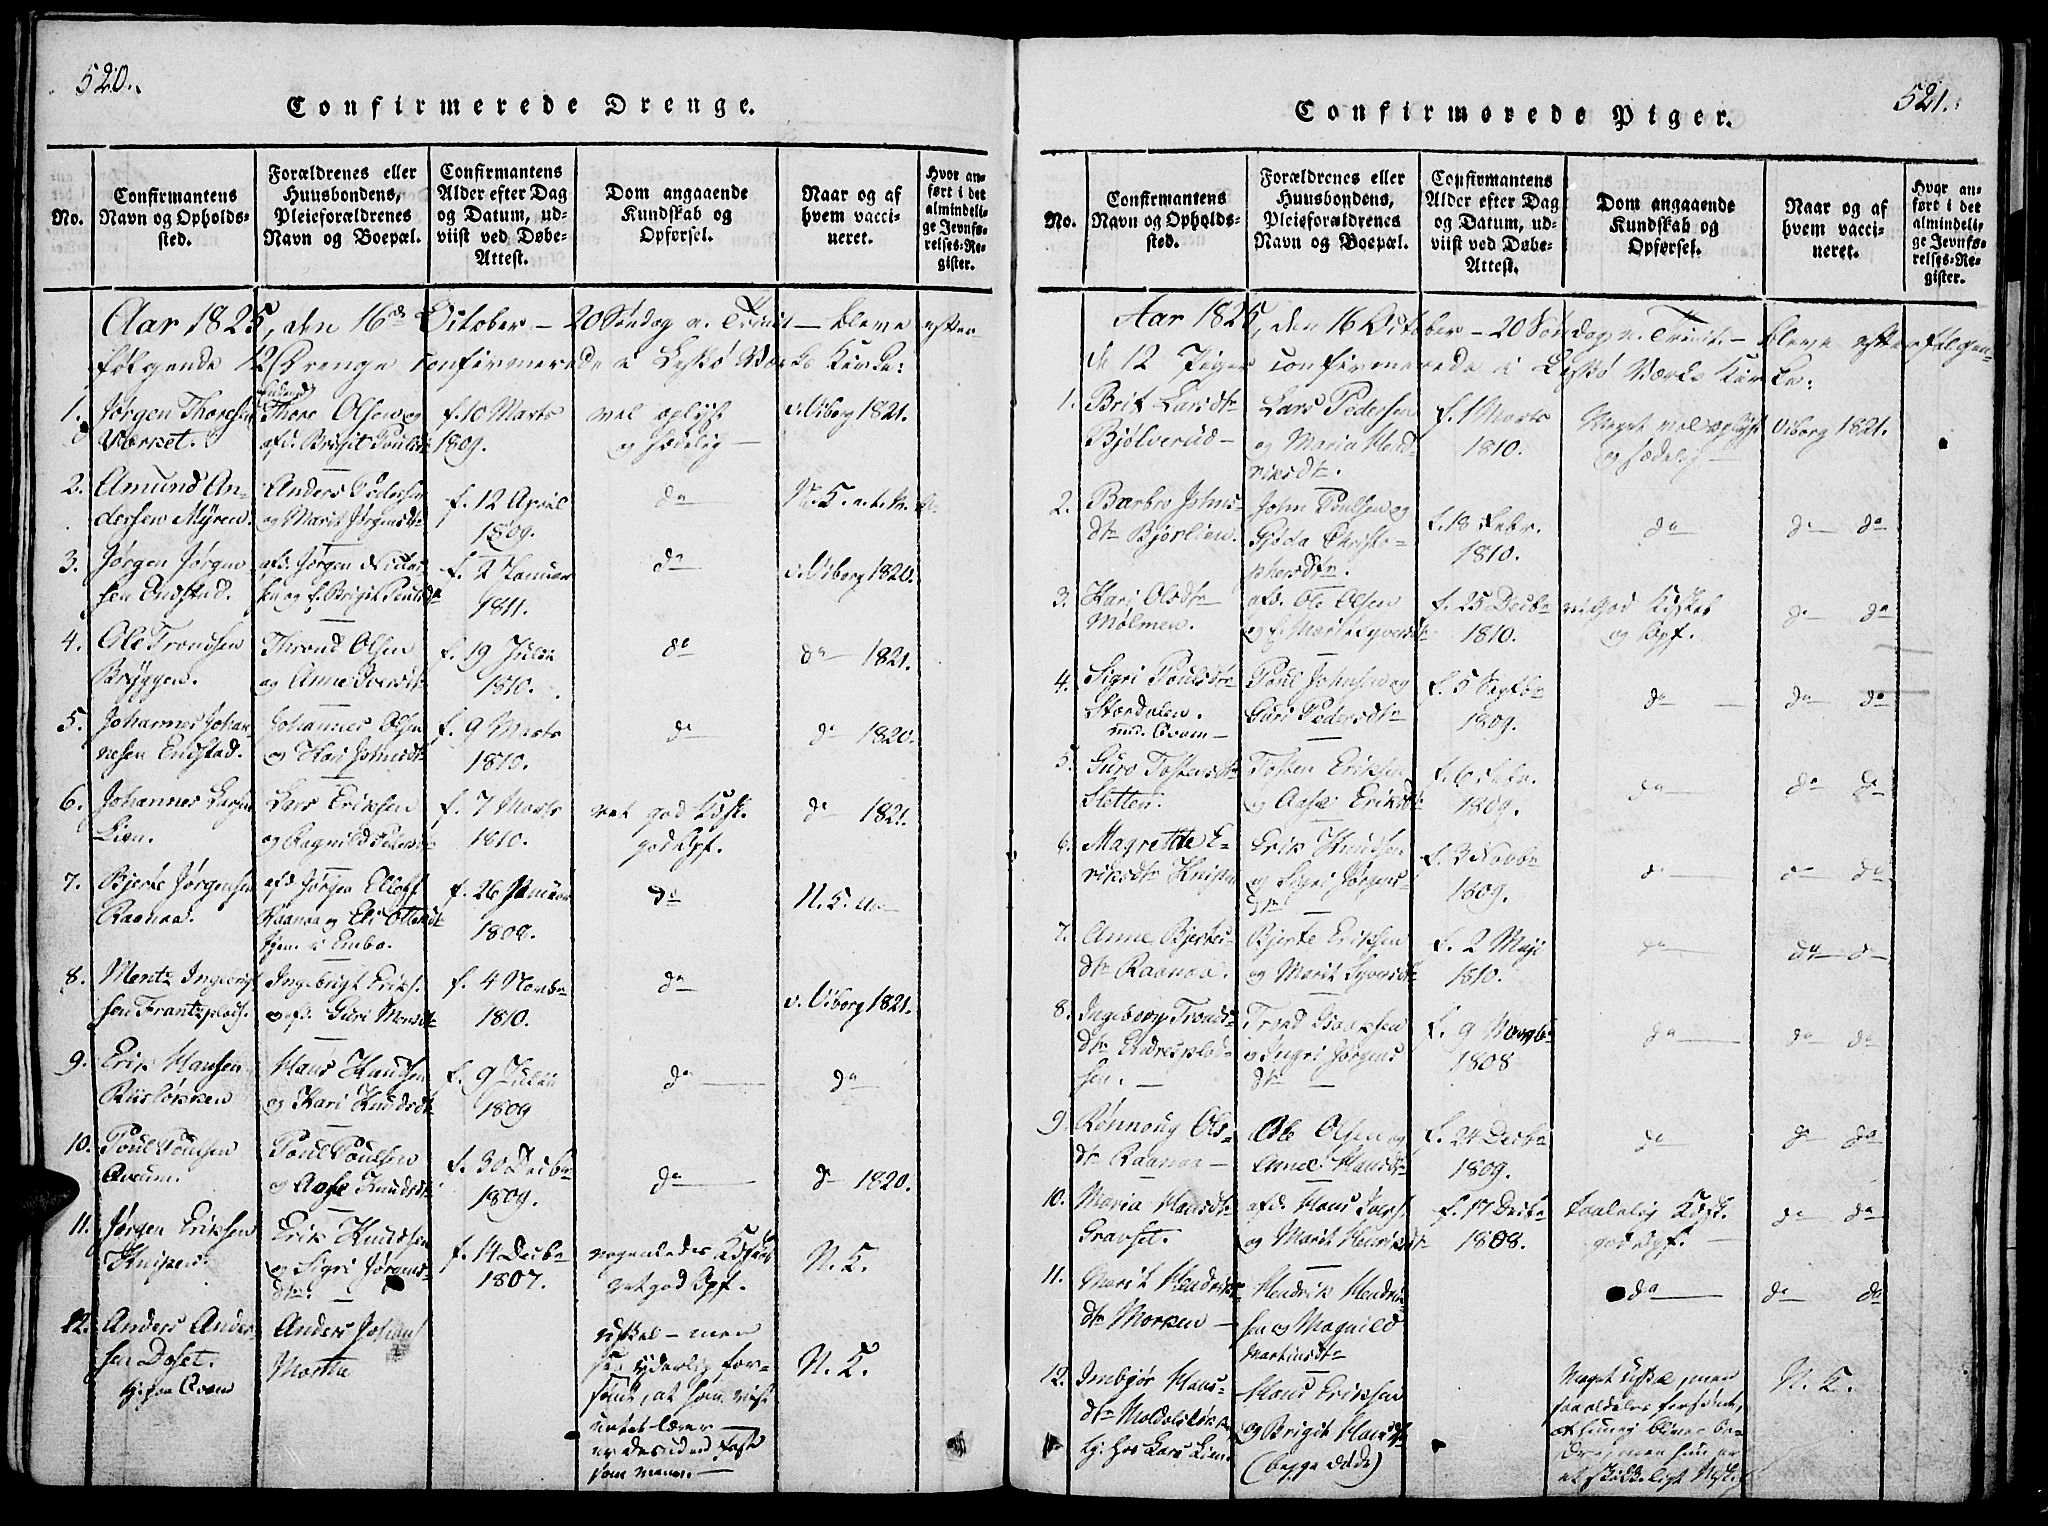 520.
Confirmerede Drenge.
No.
Confirmantens
Navn og Opholds-
sted.
Forældrenes eller
Huusbondens,
Pleieforældrenes
Navn og Boepæl.
Confirmantens
Alder efter Dag
og Datum, ud-
viist ved Døbe-
Attest.
Dom angaaende
Kundskab og
Opførsel.
Naar og af
hvem vacci-
neret.
Hvor an-
ført i det
almindeli-
ge Jevnfø-
relses-Re-
gister.
Aar 1825, den 16de October – 20 Søndag e. Trinit – bleve efter-
følgende 12 Drenge confirmerede i Lesø Værks Kirke:
1. Jørgen Thoresen
Værket.
Thore Olsen og
afd. Brigit Poulsdtr
f. 10 Marts
1809.
vel oplyst
og sædelig –
v. Viborg 1821.
2. Amund An-
dersen Myren.
Anders Pedersen
og Marit Jørgensdtr
f. 12 April
1809.
do
3. Jørgen Jørgen-
sen Endstad.
afd. Jørgen
og f. Brigit Poulsdtr
f. 2 Januar
1811.
do
v. Viborg 1820.
4. Ole Trondsen
Bryggen.
Thrond Olsen
og Anne Iversdtr
f. 19 Julii
1810.
do
do 1821.
5. Johannes Johan-
nesen Endstad.
Johannes Olsen
og Kari Johnsdtr
f. 9 Marts
1810.
do
do 1820.
6. Johannes Larsen
Lien.
Lars Eriksen
og Ragnild Pedersdtr
f. 7 Marts
1810.
ret god Kdsk.
god Opf.
do 1821.
7. Bjerte Jørgensen
Raanaa.
afd. Jørgen Ellefs.
Raanaa og Eli Ottersdtr
f. 26 Januar
1809.
do
8. Mentz Ingebrigt-
sen Frantzplads.
Ingebrigt Eriks.
og afd. Guri Monsdtr
f. 4 Novbr
1810.
do
v. Viborg 1821.
9. Erik Hansen
Riisløkken
Hans Knudsen
og Kari Knudsdtr
f. 9 Julii
1809
do
do
10. Poul Poulsen
Qvam.
Poul Poulsen
og Aase Knudsdtr
f. 30 Decbr
1809.
do
do 1820.
11. Jørgen Eriksen
Knipen.
Erik Knudsen
og Sigri Jørgens-
dtr. –
f. 14 Decbr
1807.
nogenledes Kdskab
ret god Opf.
N. K.
12. Anders Ander-
sen Doset.
Anders Johans
Martha
– men
N. K.
521.
Confirmerede Piger.
No.
Confirmantens
Navn og Opholds-
sted.
Forældrenes eller
Huusbondens,
Pleieforældrenes
Navn og Boepæl.
Confirmantens
Alder efter Dag
og Datum, ud-
viist ved Døbe-
Attest.
Dom angaaende
Kundskab og
Opførsel.
Naar og af
hvem vacci-
neret.
Hvor an-
ført i det
almindeli-
ge Jevnfø-
relses-Re-
gister.
Aar 1825, den 16 October – 20 Søndag e. Trinit. – bleve efterfølgen-
de 12 Piger confirmerede i Lesø Værks Kirke:
1. Brit Larsdtr
Bjølverud –
Lars Pedersen
og Maria Hend-
riksdtr.
f. 1 Marts
1810.
Meget vel oplyst
og sædelig –
Viborg 1821.
2. Barbro Johns-
dtr Bjørlien.
John Poulsen og
Gjøda Christo-
phersdtr.
f. 18 Febr.
1810.
do
do do
3. Kari Olsdtr
Mølmen.
afd. Ole Olsen
og f. Marit Syversdtr
f. 25 Decbr
1810.
og Opf.
do do
4. Sigri Poulsdtr
Stordalen.
Poul Johnsen og
Guri Pedersdtr
f. 5 Septbr
1809.
do
do do
5. Guro Tostensdtr
Sletten.
Tosten Eriksen
og Aase Eriksdtr
f. 6 Febr.
1809.
do
do do
6. Magrethe E-
riksdtr Knipen
Erik Knudsen
og Sigri Jørgens-
dtr –
f. 3 Novbr
1809.
do
do do
7. Anne Bjertes-
dtr Raanaa.
Bjerte Eriksen
og Marit Syversdtr
f. 2 Maji
1810.
do
do do
8. Ingeborg Tronds-
dtr Endresplad-
sen. –
Trond
og Ingri Jørgens
dtr –
f. 9 Novbr
1808
do
do do
9. Rønnoug Ols-
dtr Raanaa –
Ole Olsen og
Anne Hansdtr
f. 24 Decbr
1809.
do
do do
10. Maria Hansdtr
Gravset.
afd. Hans Ivers.
og Marit Henriksdtr
f. 17 Decbr
1808.
taalelig Kdsk.
god Opf. –
do do
11. Marit Hendriks-
dtr Morken –
Hendrik Hendrik-
sen og Magnild
Martinsdtr
do
do do
12. Imbjør Hans-
dtr
hos Lars Lien.
Hans Eriksen
og Brigit Hansdtr
(begge døde)
N. K.